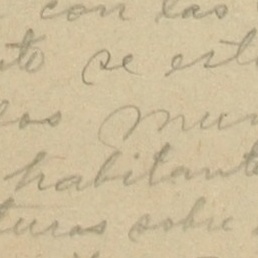 con las
se est
los mun
habitant
turas sobre